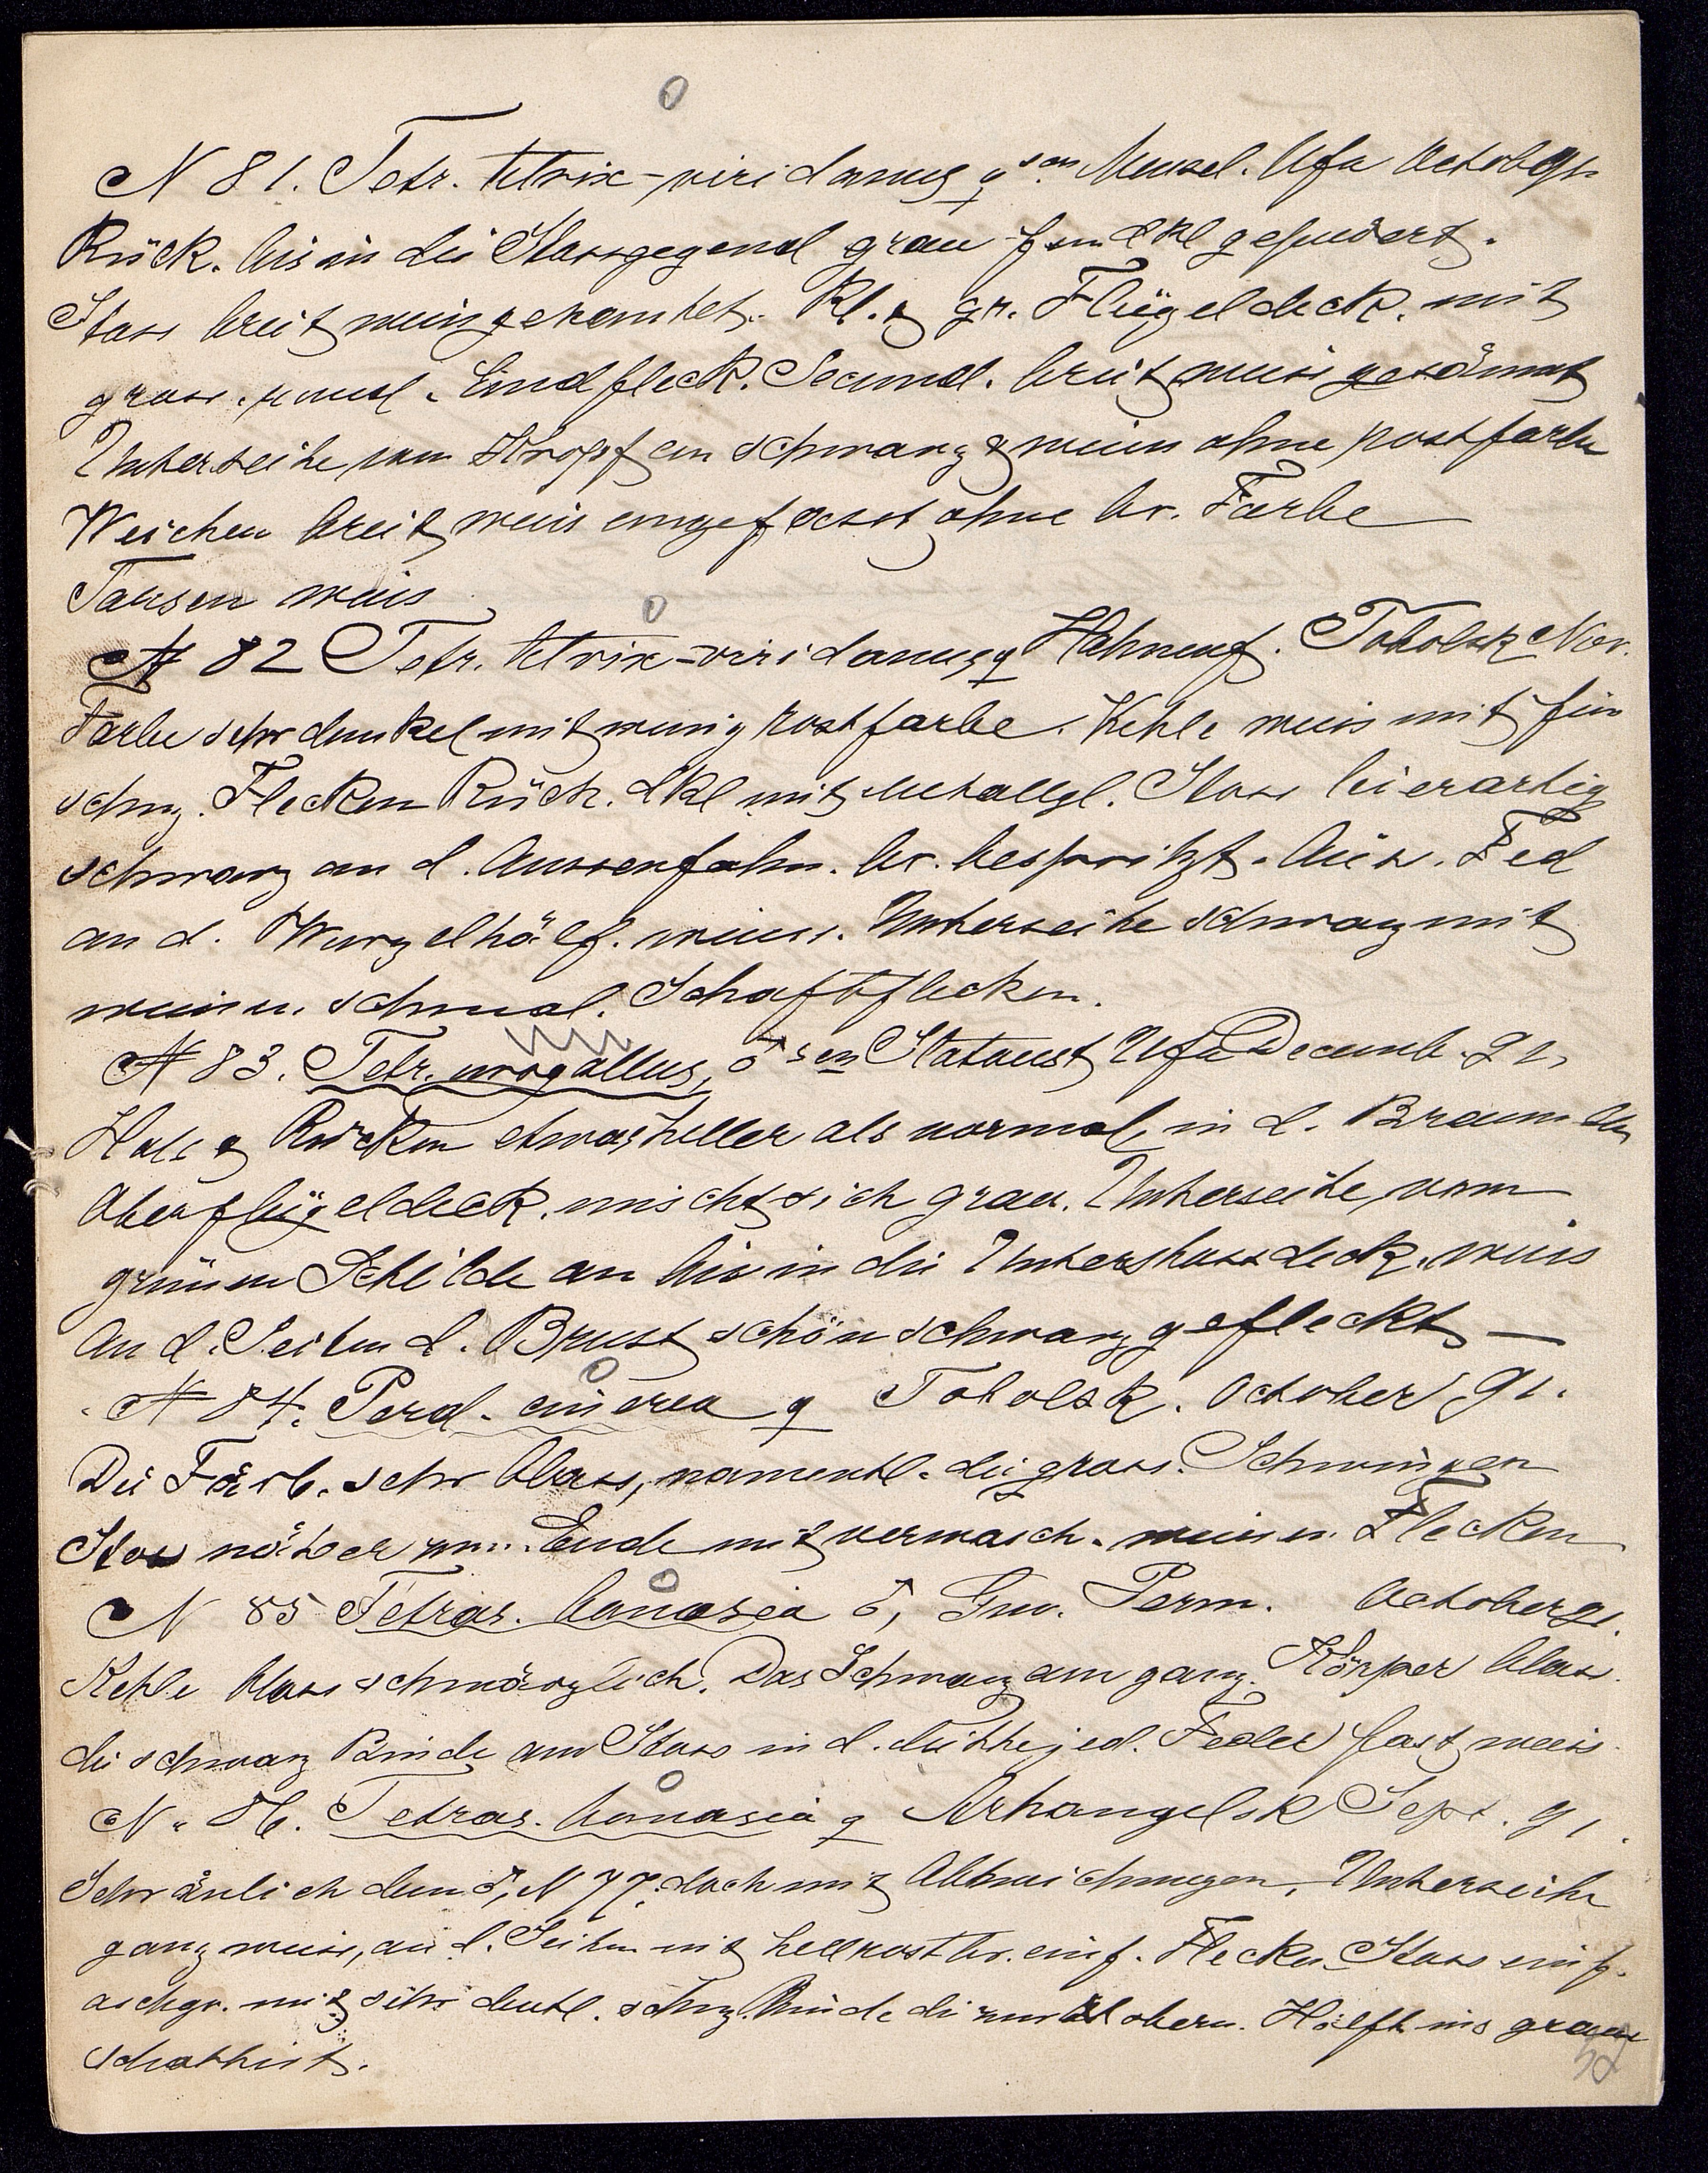 0
N 81. Tetr. tetrix-viridanus ♀ sen Mensel. Ufa Octob 91.
Rück. bis in die Stossgegend grau fein dkl gepudert.
Stoss breit weis gekantet. Kl. & gr. Flügeldeck. mit
gross. rundl. Endfleck. Secund. breit weis gesäumt
Unterseite vom Kropf an schwarz & weiss ohne rostfarbe
Weichen breit weis eingefasst ohne br. Farbe
Tarsen weis
0
N 82 Tetr. tetrix-viridanus ♀ Hahnenf. Tobolsk Nov.
Farbe sehr dunkel mit wenig rostfarbe. Kehle weis mit fein
schwz. Flecken Rück. dkl mit Metallgl. Stoss leierartig
schwarz an d. Aussenfahn. br. bespritzt. Äus. Fed
an d. Wurzelhälf. weiss. Unterseite schwarz mit
weissen schmal. Schaftflecken.
N 83. Tetr. urogallus, ♂ sen Slatoust Ufa Decemb. 91,
Hals & Rücken etwas heller als normal, in d. Braun der
Oberflügeldeck. mischt sich grau. Unterseite vom
grünen Schilde an bis in die Unterstossdeck. weis
an d. Seiten d. Brust schön schwarz gefleckt —
0
N 84. Perd. cinerea ♀ Tobolsk. October 91.
Die Färb. sehr blass, namentl. die gross. Schwingen
Stoss näher zum Ende mit verwasch. weissen Flecken
0
N 85 Tetras. bonasia ♂, Guv. Perm. October 91.
Kehle blass schwärzlich. Das Schwarz am ganz. Körper blass.
die schwarz Binde am Stoss in d. Mitte jed. Feder fast weis.
0
N. 86. Tetras. bonasia ♀ Arhangelsk Sept. 91.
Sehr änlich dem ♂, N 77, doch mit Abbweichungen. Unterseite
ganz weiss, an d. Seiten mit hellrostbr. einf. Flecken Stoss einf.
aschgr. mit sehr deutl. schwz. Binde die zur obern. Hälfte ins graue
schattirt.